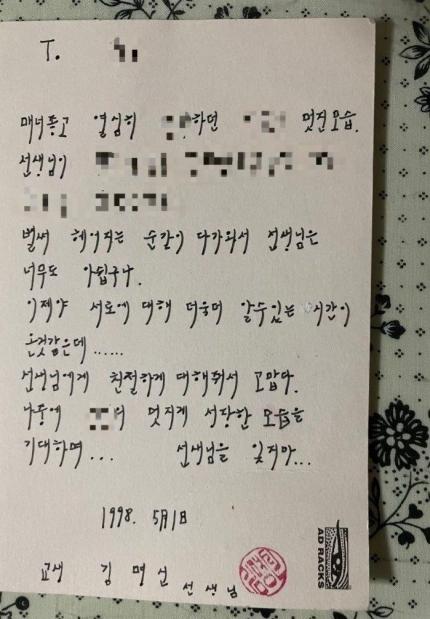 T.
매너좋고 열심히 하던 멋진모습.
선생님이
벌써 헤어지는 순간이 다가와서 선생님은
너무도 아쉽구나.
이제야 서로에 대해 더욱더 알수있는 시간이
온것같은데......
선생님에게 친절하게 대해줘서 고맙다.
나중에 의 멋지게 성장한 모습을
기대하며... 선생님을 잊지마...
1998. 5月1日
교생 김명선 선생님
AD RACKS